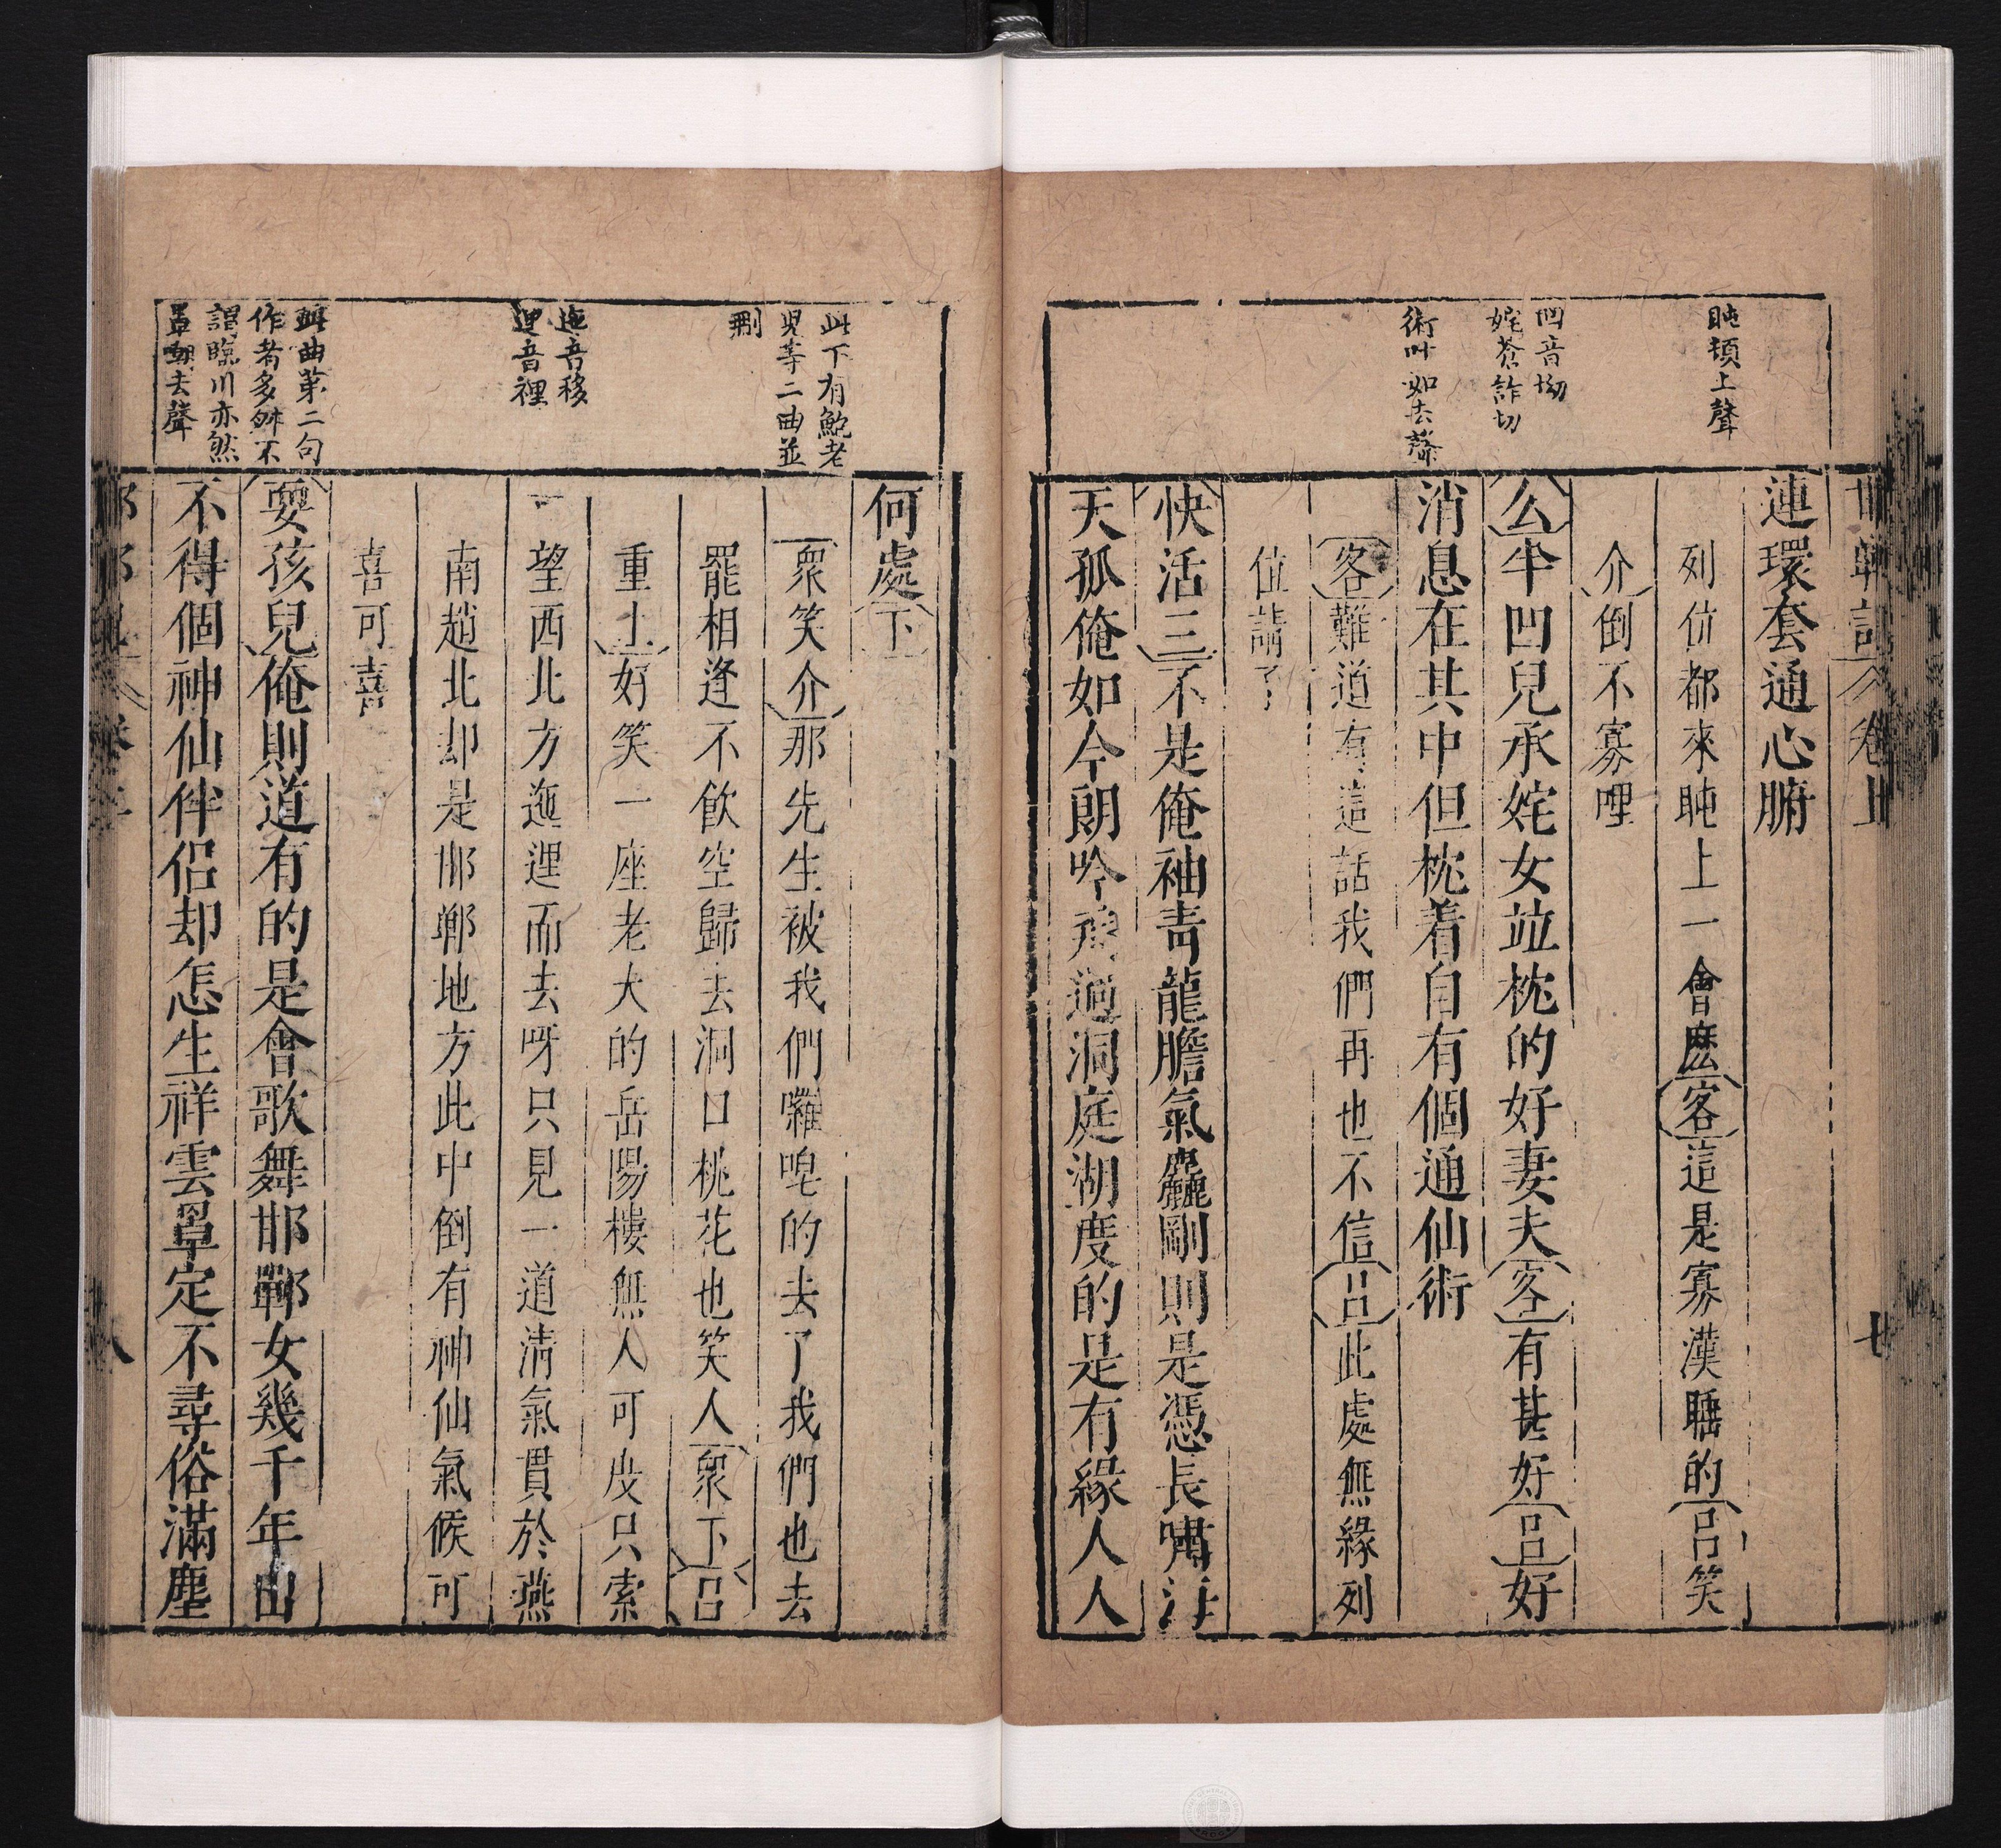 邯鄲記 卷上 七
盹頓上聲
凹音坳
姹蒼詐切
術叶如去聲
連環套通心腑
列位都來盹上一會麽客這是寡漢睡的呂笑
介倒不寡哩
么半凹兒承姹女竝枕的好妻夫客有甚好呂好
消息在其中但枕着自有個通仙術
客難道有這話我們再也不信呂此處無緣列
位請了
快活三不是俺袖青龍膽氣麤剛則是憑長嘯汪
天孤俺如今朗吟飛過洞庭湖度的是有緣人人
此下有鮑老
兒等二曲並
刪
迤音移
逦音裡
此曲第二句
作者多舛不
謂臨川亦然
罩嘲去聲
何處下
衆笑介那先生被我們囉唣的去了我們也去
罷相逢不飲空歸去洞口桃花也笑人衆下呂
重上好笑一座老大的岳陽樓無人可度只索
望西北方迤逦而去呀只見一道清氣貫於燕
南趙北却是邯鄲地方此中倒有神仙氣候可
喜可喜
耍孩兒俺則道有的是會歌舞邯鄲女幾千年出
不得個神仙伴侶却怎生祥雲罩定不尋俗滿塵
八